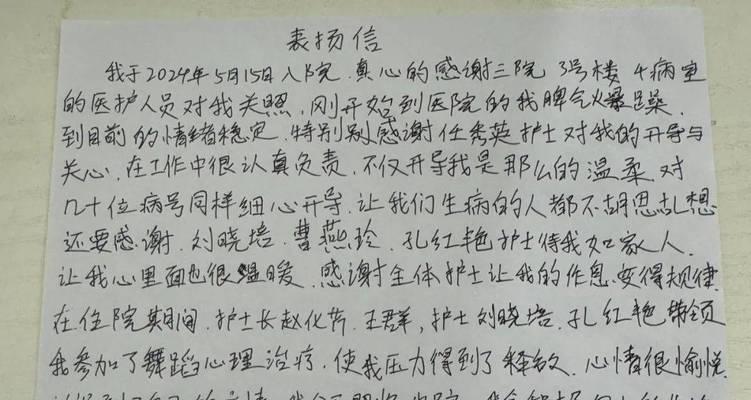 表扬信
我于2024年5月15日入院.真心的感谢三院 3号楼 4病室
的医护人员对我关照,刚开始到医院的我脾气火暴躁
到目前的情绪稳定.特别别感谢任秀英护士对我的开导与
关心.在工作中很认真负责.不仅开导我是那么的温柔.对
几十位病号同样细心开导.让我们生病的人都不胡思乱想
还要感谢.刘晓培.曹燕玲.孔红艳护士待我如家人.
让我心里面也很温暖.感谢全体护士让我的作息.变得规律
在住院期间.护士长赵化芳.王群,护士刘晓培.孔红艳带领
我参加了舞蹈心理治疗,使我压力得到了释放.心情很愉悦.